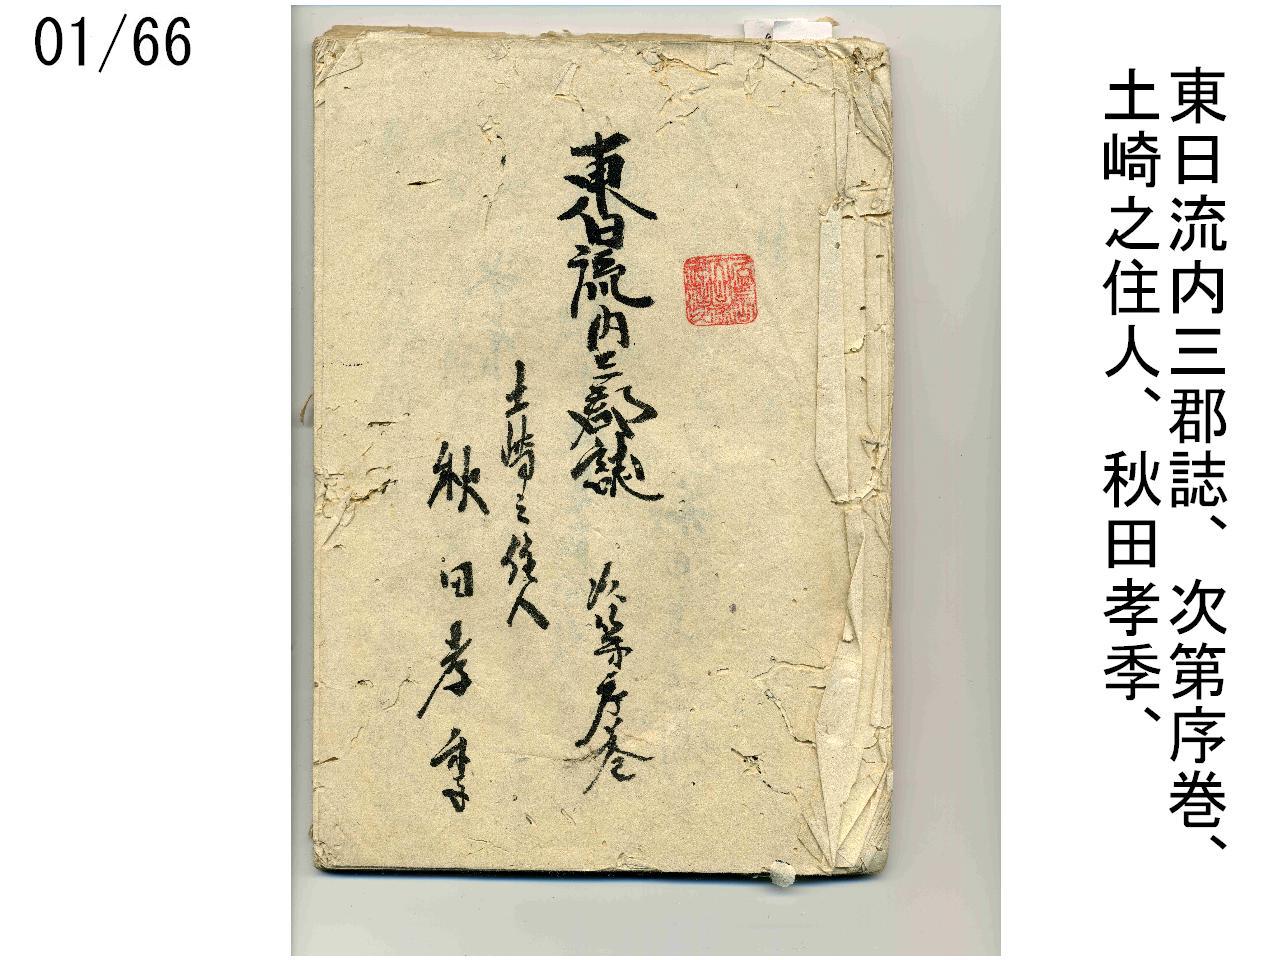 01/66
東日流内三郡誌、次第序巻、
土崎之住人、秋田孝季、
東日流内三郡誌 次第序巻
土崎之住人
秋田孝季